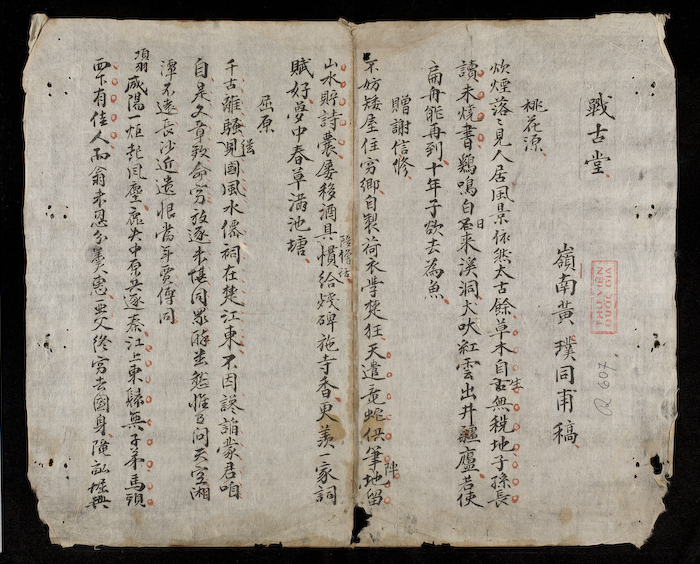 戰古堂
嶺南黃璞同甫稿
THƯ VIỆN
QUỐC GIA
R 607
桃花源
炊煙落〻見人居風景依然太古餘草木自生無稅地子孫長
讀未燒書鷄鳴白日來溪洞犬吠紅雲出井廬若使
扁舟能再到十年子欲去為魚
贈謝信修
不妨矮屋住窮鄉自製荷衣學楚狂天遣龍蛇供筆陣地留
山水貯詩囊屢移酒具慣給殘碑施寺香更羨一家詞
賦好夢中春草滿池塘
屈原
千古離騷見國風水僊祠在楚江東不因讒諂蒙君
自是文章致命窮放逐未堪同眾醉悲惟問天空湘
潭不遠長沙近遺恨當年賈傅同
項羽
咸陽一炬起風塵鹿失中原共逐秦江上東歸無子弟馬頭
西下有佳人而翁未忍分羹惠亞父終窮去國身